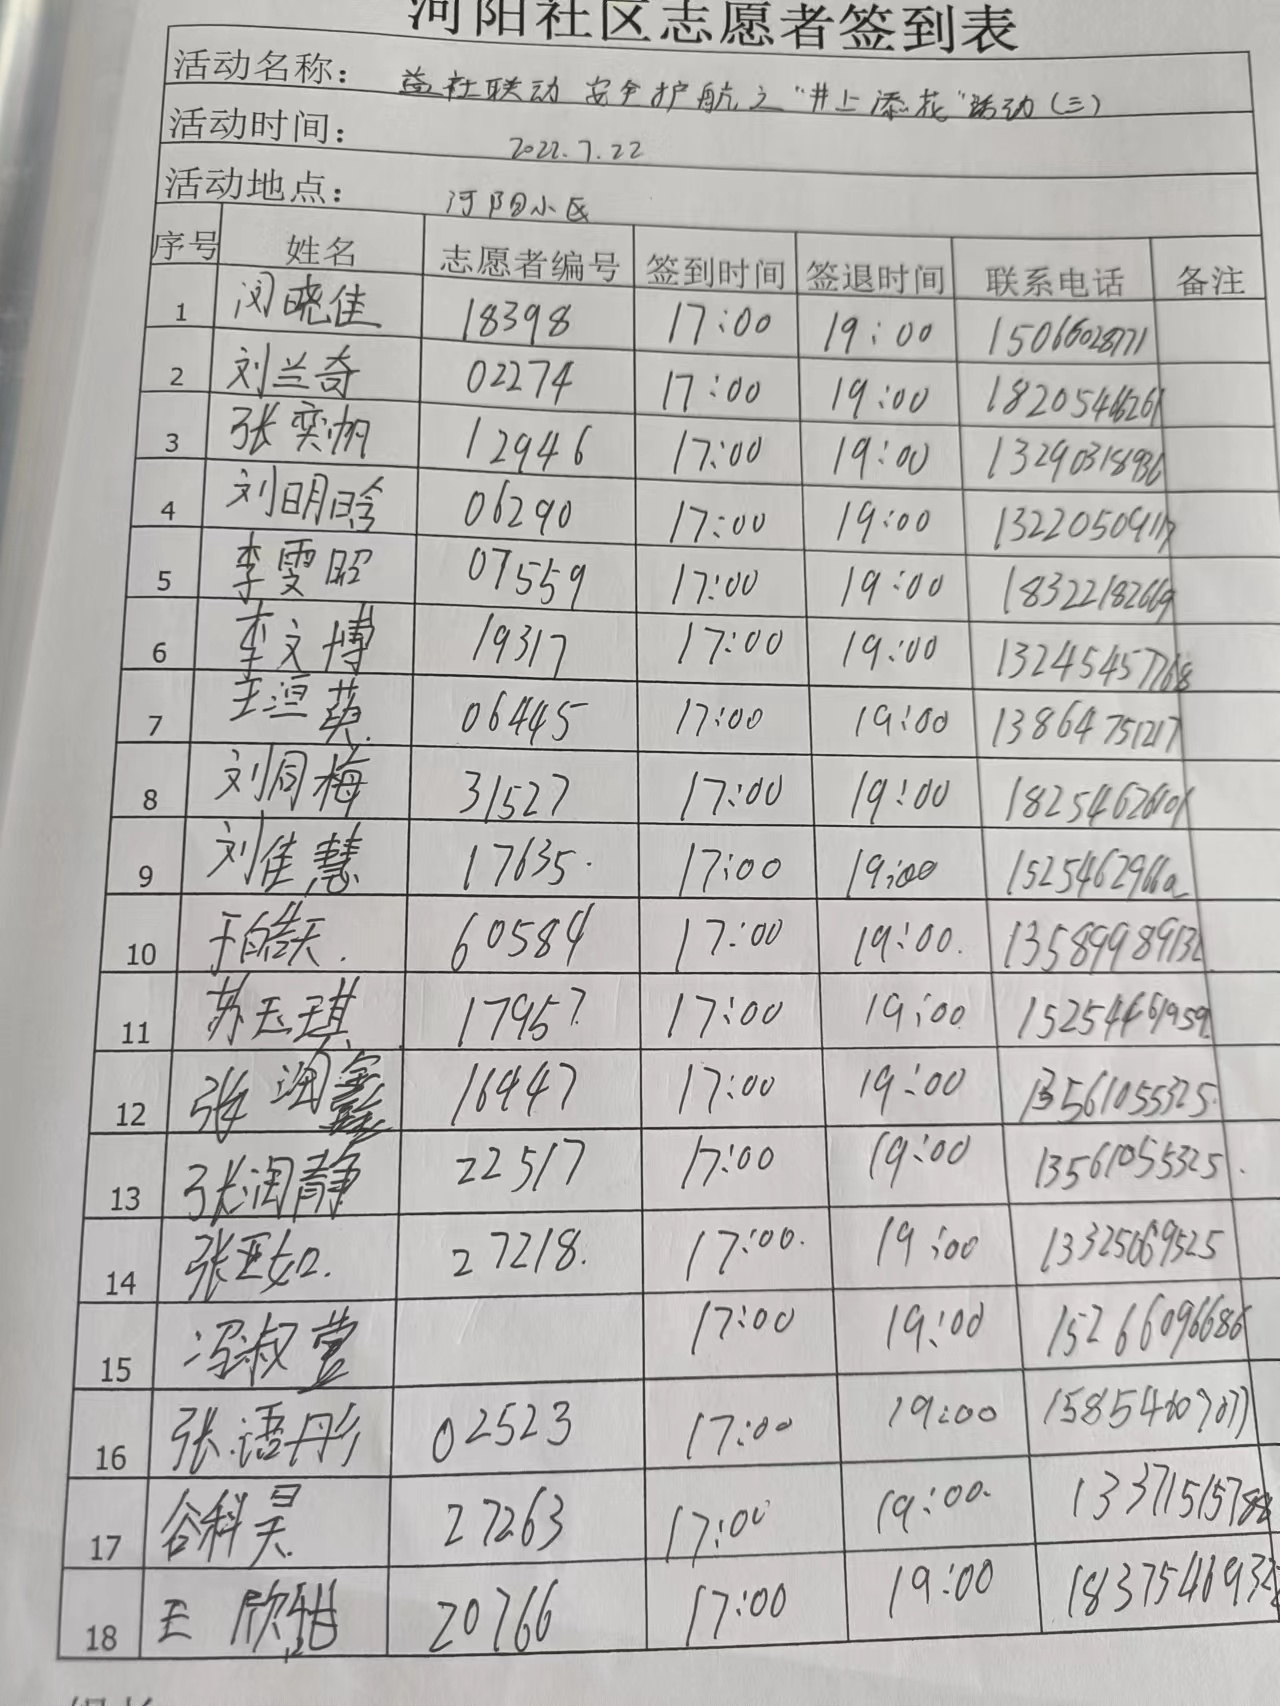 河阳社区志愿者签到表
活动名称： 益社联动 安全护航之“井上添花”活动（三）
活动时间： 2022.7.22
活动地点： 河阳小区
序号 姓名 志愿者编号 签到时间 签退时间 联系电话 备注
1 闵晓佳 18398 17:00 19:00 15066028771
2 刘兰奇 02274 17:00 19:00 18205466261
3 张奕帆 12946 17:00 19:00 13290318936
4 刘明晗 06290 17:00 19:00
5 李雯昭 07559 17:00 19:00 18322182669
6 李文博 19317 17:00 19:00 13245457768
7 王洹英 06445 17:00 19:00 13864751217
8 刘同梅 31527 17:00 19:00
9 刘佳慧 17635. 17:00 19:00
10 于皓天. 60584 17:00 19:00. 13589989132
11 苏玉琪 17957 17:00 19:00 15254461959
12 张润鑫 16447 17:00 19:00 13561055325.
13 张润静 22517 17:00 19:00 13561055325.
14 张亚如. 27218. 17:00. 19:00 13325069525
15 冯淑萱 17:00 19:00 15266096686
16 张语彤 02523 17:00 19:00
17 谷科昊 27263 17:00 19:00. 13371515788
18 王欣怡 20766 17:00 19:00